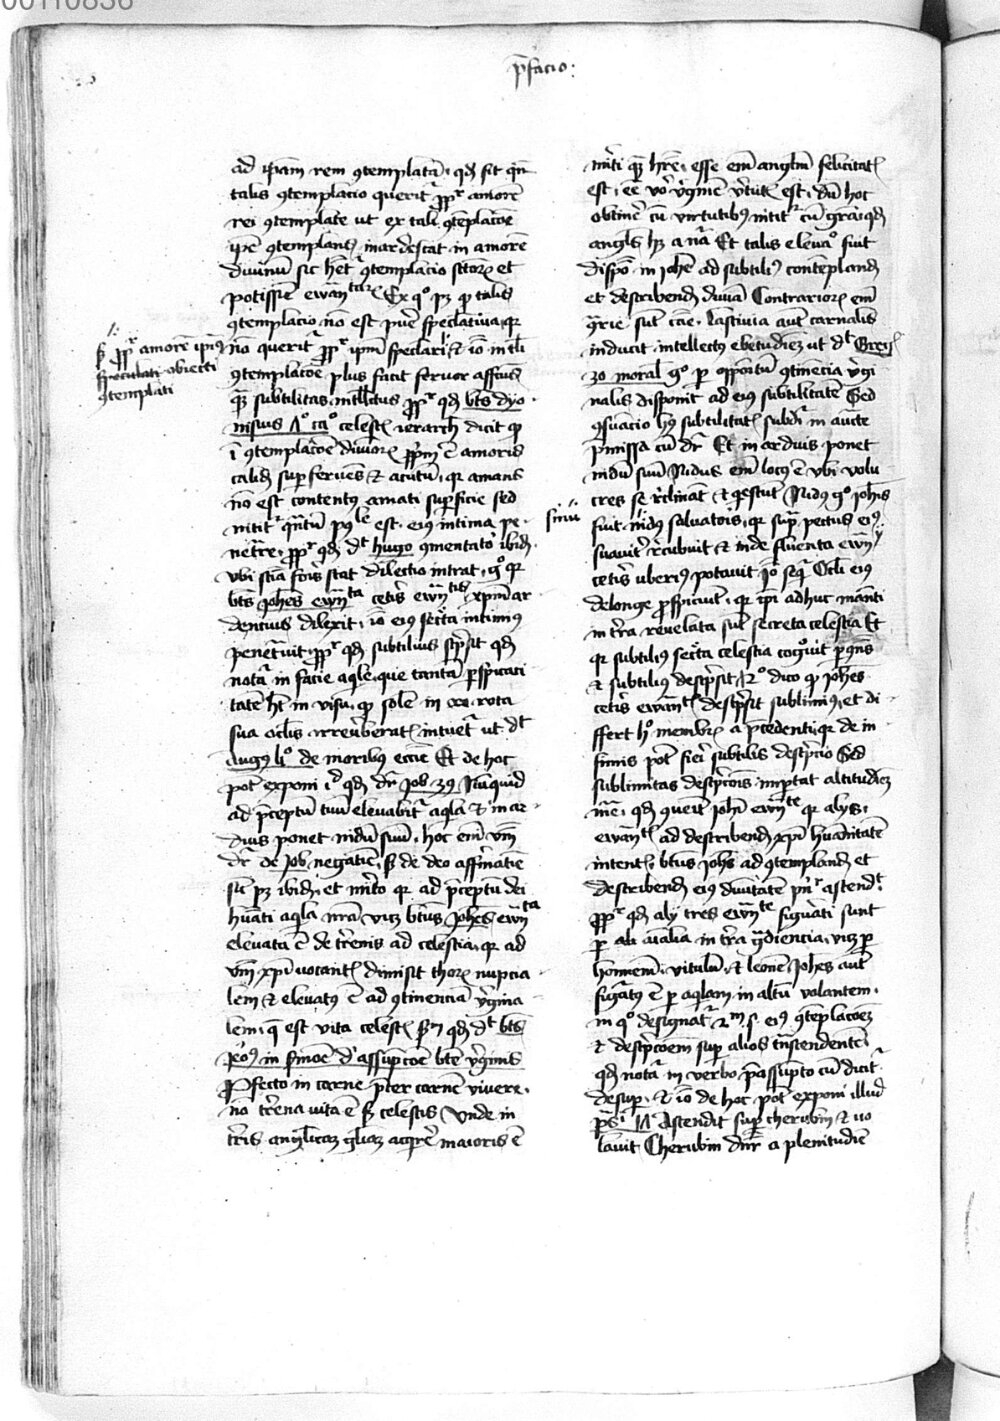 00110836
p̄facio:
ad ip̄am rem ꝯtemplatā. qd̛ sit qn̄
talis ꝯtemplacio querit᷑ ꝓpt᷑ amorē
rei ꝯtemplate ut ex tali ꝯtēplacōe
ip̄e ꝯtemplans inardescat in amorē
diuinū sic het᷑ ꝯtemplacio sctoꝝ et
potissīe ewan
ꝯtemplacio nō est pure speclatiua qr
nō querit᷑ ꝓpt᷑ ip̄m speclari et iō in tali
ꝯtemplacōe plus facit feruor affcus
qȝ subtilitas intllctus ꝓpt᷑ qd̛ bts dyo
nisius celest ierarch dicit ꝙ
ī ꝯtemplacōe diuinoꝝ ē amoris
calid sup feruens et acutū, qr amans
nō est contentꝰ amati suꝑficie sed
nitit᷑ qntū est eiꝰ intima pe
netrare ꝓpt᷑ qd̛ dt hugo ꝯmentator ibid.
vbi sciā foris stat dilectio intrat, gͦ qr
bts Johēs ewn̄ta cetis ewn̄tis xp̄m ar
dencius dilexit, iō eiꝰ secta intimiꝰ
penetuit. ꝓpt᷑ qd̛ subtilius scpsit qd̛
notat᷑ in facie aqle, que tantā ꝑspicaci
tatē ht in visu, ꝙ solē in rota
sua oclis irreuberatis intuet᷑ ut dt
Augꝰ lͦ de moribus eccīe Et de hoc
pot exponi id qd̛ dr Job 39 Nūquid
ad p̄ceptū tuū eleuabit᷑ aqla et in ar
duis ponet nidū suū, hoc em̄ vm̄
dr de Job negatiē, sȝ de deo affirmatiē
ibid, et mīto qr ad p̄ceptū dei
huāti aqla nrā vicȝ btūs Johēs ewn̄ta
eleuata ē de tr̄enis ad celestia, qr ad
vm̄ xp̄i uocant dimisit thoꝝ nupcia
lem et eleuatꝰ ē ad ꝯtinenciā v̄gina
lem, q̄ est vita celest sm̄ qd̛ dt bts
Jeroꝰ in smōe d' assūpcōe bte v̄ginis
Profecto in carne p̄ter carnē viuere.
nō tr̄ena vita ē sȝ celestis Vnde in
tr̄is anglicaȝ glāȝ acqrē maioris ē
sȝ ꝓpt᷑ amorē ipius
speculati obiecti
ꝯtemplati
m̄iti qȝ hr̄e, esse em̄ anglm̄ felicitat
est, eē vō v̄ginē v̄tut est, dū hoc
obtinē cū virtutibꝰ nitit᷑ cū grā, qd̛
angls hȝ a nā Et talis eleuaͦ fuit
dispō in Johē ad subtiliꝰ contēpland
et describend diuinā Contrarioꝝ em̄
9rie sūt cāe. lasciuia aut carnalis
inducit intellectꝰ ebetudinē ut dt Greg
30 moral gͦ ꝑ oppōitū ꝯtinēcia v̄gi
nalis disponit ad eiꝰ subtilitatē Sed
subtilitat subdit᷑ in aucte
p̄missa cū dr Et in arduis ponet
nidū suū Nidus em̄ locꝰ ē vbi volu
cres se reclināt et qescūt Nidꝰ gͦ Johīs
fuit nidꝰ saluatoris, qr sup̄ pectus eiꝰ
suauit᷑ r̄cubuit et inde fluenta ewn̄
cetis uberiꝰ potauit Iō seqt᷑ Ocli eiꝰ
delonge ꝓspiciūt. qr ip̄i adhuc manēti
in tr̄a reuelata sūt secreta celestia Et
qr subtiliꝰ secta celestia cogͦuit
et subtiliꝰ descpsit, 2ͦ dico ꝙ Johēs
cetis ewan descpsit sublimiꝰ, et di
ffert hͦ membꝝ a p̄cedenti, qr de in
fimis pot fieri subtilis descpcio Sed
sublimitas descpcōis importat altitudinē
mīe, qd̛ 9uenit Johī ewn̄te qr alys
ewan ad describend xp̄i huanitatē
intent, btus Johes ad ꝯtempland et
describend eiꝰ diuitatē pn̄r ascend
ꝓpt᷑ qd̛ aly tres ewn̄te figurati sunt
ꝑ alia aīalia in tr̄a gdiencia, vicȝ ꝑ
hominem, vitulū, et leonē, Johes aut
figatꝰ ē ꝑ aqlam in altū volantem.
in qͦ designat᷑ 2m s. eiꝰ ꝯtēplacōeȝ
et descpcōem sup alios tn̄scendentē
qd̛ nota in verbo p̄assūpto cū dicit᷑
desup. et iō de hoc pot exponi illud
ps. Ascendit sup cherubin et uo
lauit Cherubin dnr a plenitudiē
sinū